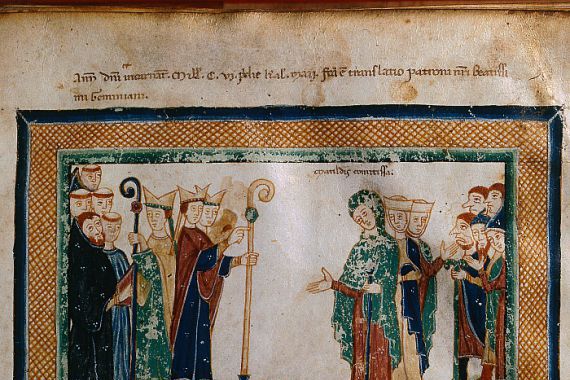 Anno dni incarnat. Mill. C. VI. pdie kal. maii. fca e translatio patroni nri beatissi
mi Geminiani.
Matildis comitissa.